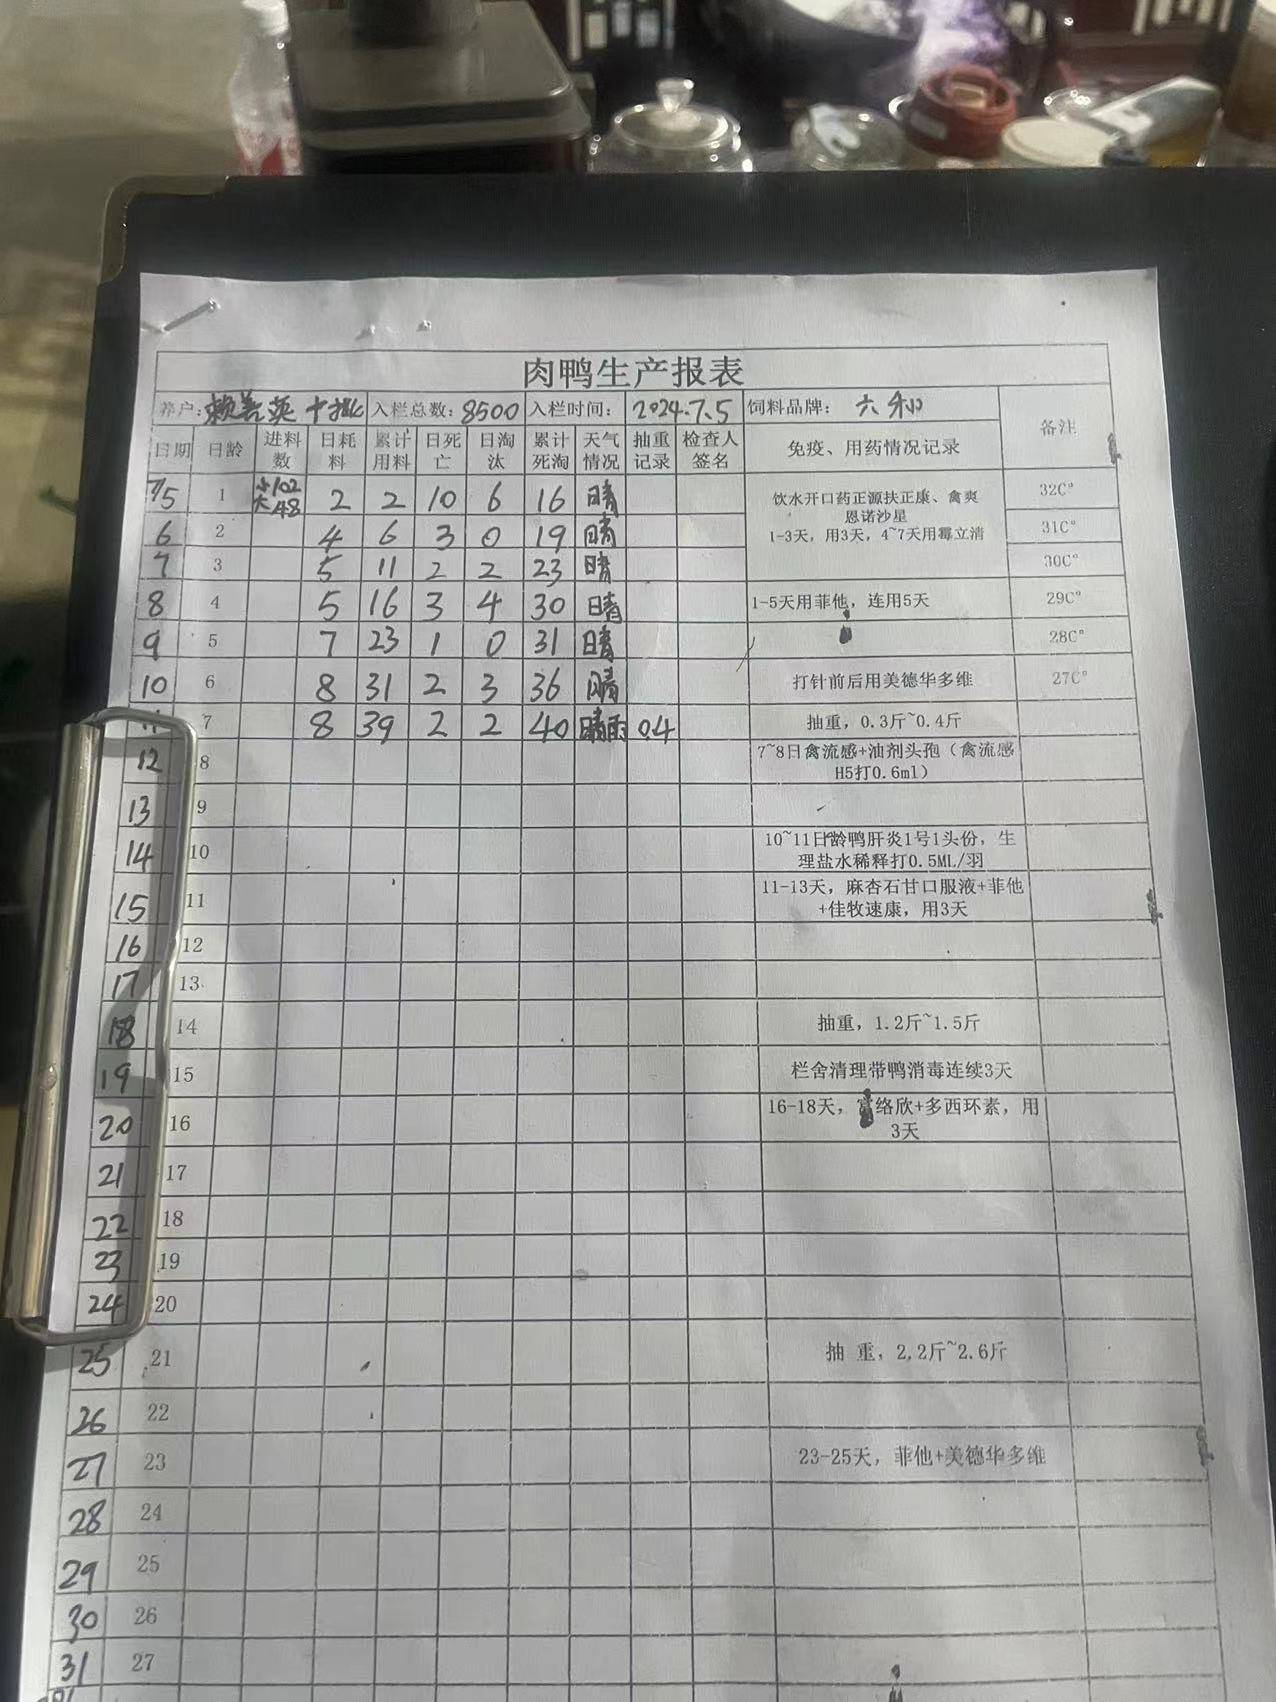 肉鸭生产报表
养户: 赖善英 十批 入栏总数: 8500 入栏时间: 2024.7.5 饲料品牌: 六和 备注
日期 日龄 进料数 日耗料 累计用料 日死亡 日淘汰 累计死淘 天气情况 抽重记录 检查人签名 免疫、用药情况记录
7/5 1 小102 大48 2 2 10 6 16 晴 饮水开口药正源扶正康、禽爽 32C°
恩诺沙星
6 2 4 6 3 0 19 晴 1-3天，用3天，4~7天用霉立清 31C°
7 3 5 11 2 2 23 晴 30C°
8 4 5 16 3 4 30 晴 1-5天用菲他，连用5天 29C°
9 5 7 23 1 0 31 晴 28C°
10 6 8 31 2 3 36 晴 打针前后用美德华多维 27C°
11 7 8 39 2 2 40 晴雨 0.4 抽重，0.3斤~0.4斤
12 8 7~8日禽流感+油剂头孢（禽流感
H5打0.6ml）
13 9
14 10 10~11日龄鸭肝炎1号1头份，生
理盐水稀释打0.5ML/羽
15 11 11-13天，麻杏石甘口服液+菲他
+佳牧速康，用3天
16 12
17 13
18 14 抽重，1.2斤~1.5斤
19 15 栏舍清理带鸭消毒连续3天
20 16 16-18天，络欣+多西环素，用
3天
21 17
22 18
23 19
24 20
25 21 抽 重，2,2斤~2.6斤
26 22
27 23 23-25天，菲他+美德华多维
28 24
29 25
30 26
31 27